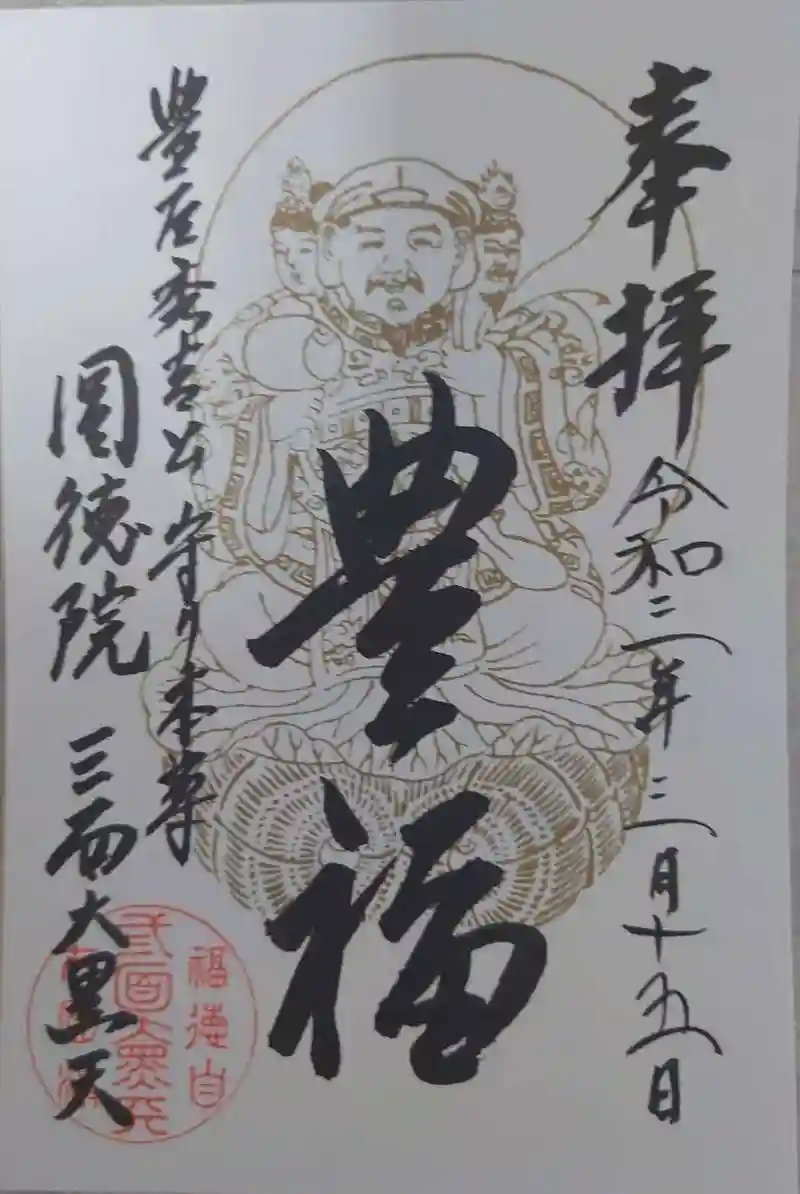 奉拝 令和三年三月十五日
豊福
豊臣秀吉公 守り本尊
圓徳院 三面大黒天
福徳自
三面大黒天